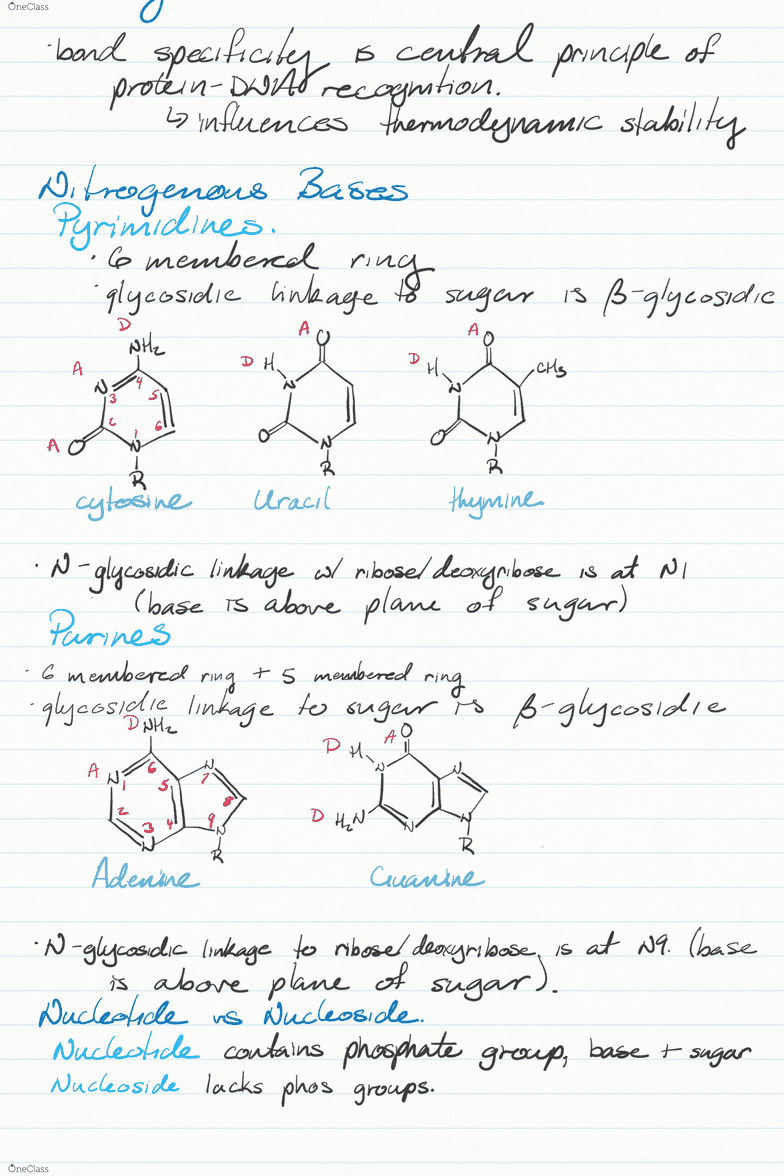 OneClass
·bond specificity is central principle of
protein-DNA recognition.
↳ influences thermodynamic stability
Nitrogenous Bases
Pyrimidines.
· 6 membered ring
·glycosidic linkage to sugar is β-glycosidic
D A A
NH₂ O O
A D H D H CH₃
N 3 4 5 N N
2 1 6
A O N O N O N
R R R
cytosine Uracil thymine
· N-glycosidic linkage w/ ribose/deoxyribose is at N1
(base is above plane of sugar)
Purines
· 6 membered ring + 5 membered ring
·glycosidic linkage to sugar is β-glycosidic
D NH₂ A O
D H
A N 1 6 5 N 7 N N
2 8
3 4 9 D H₂N
N N N N
R R
Adenine Guanine
·N-glycosidic linkage to ribose/deoxyribose, is at N9. (base
is above plane of sugar).
Nucleotide vs Nucleoside.
Nucleotide contains phosphate group, base + sugar
Nucleoside lacks phos groups.
OneClass